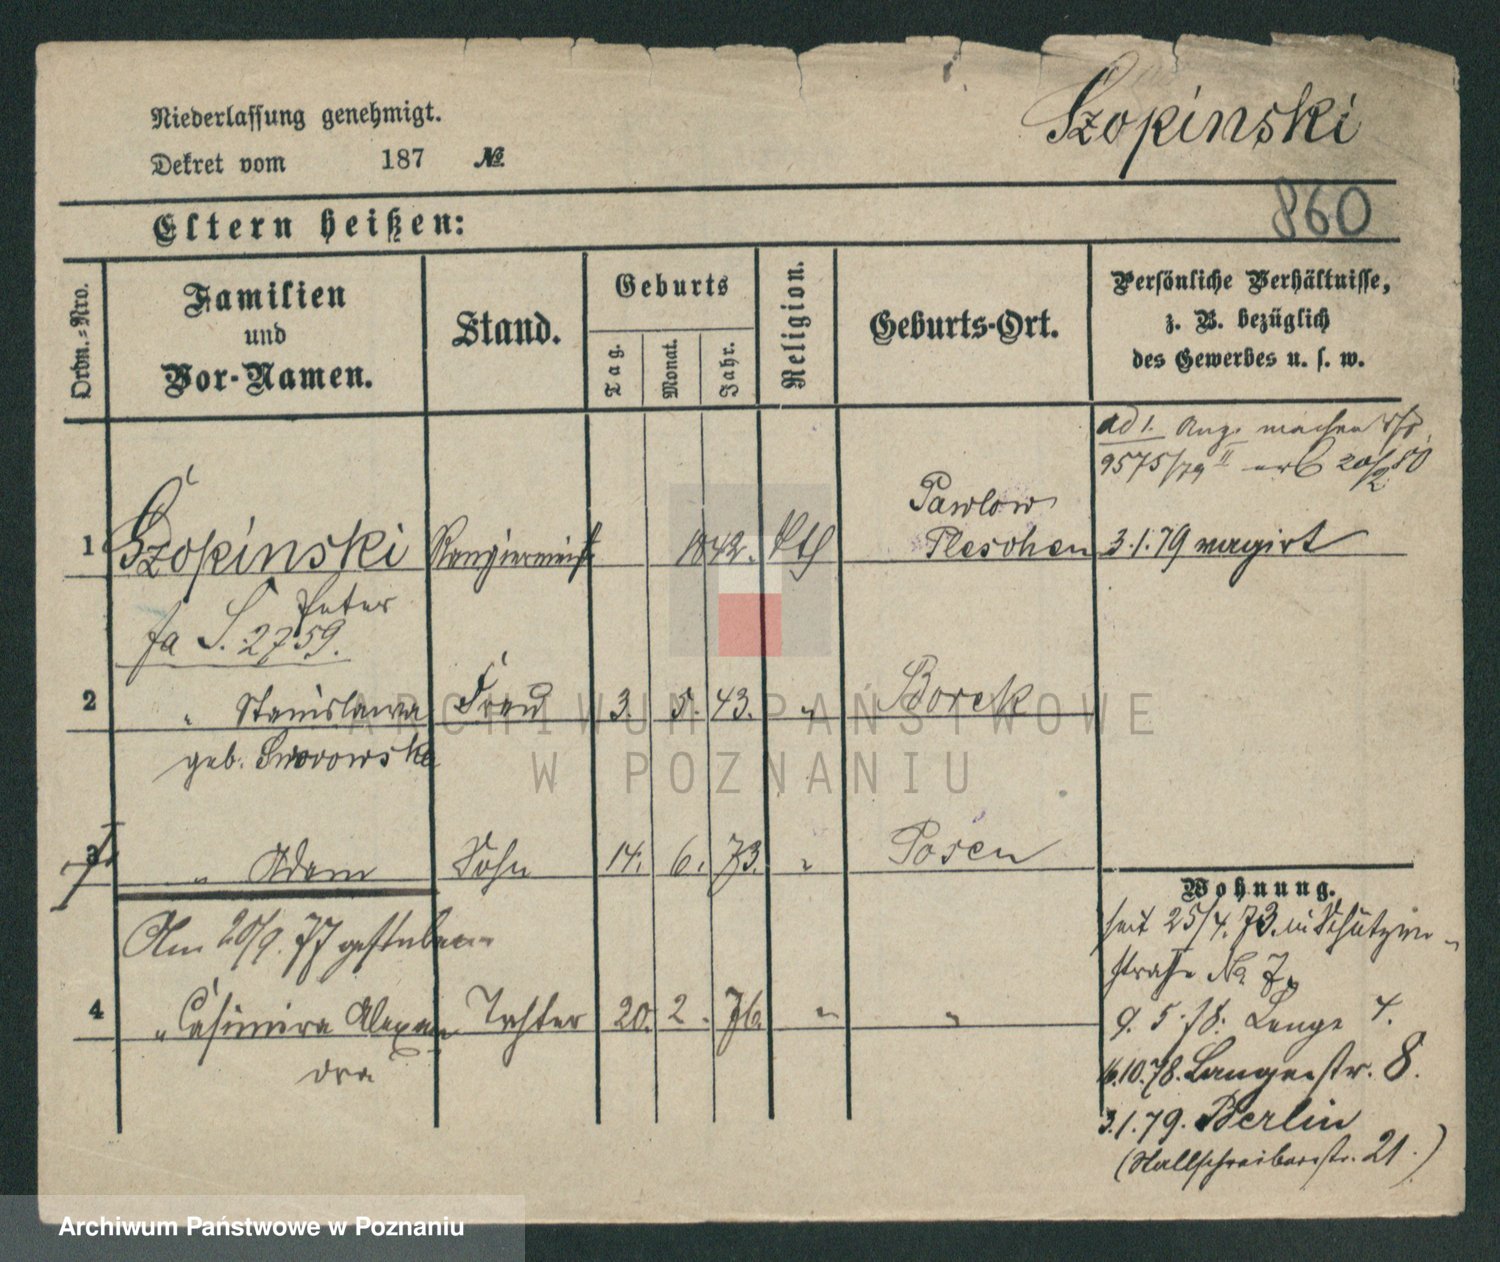 Szopinski
Niederlassung genehmigt.
Dekret vom 187 №
860
Eltern heißen:
Ordn.-Nro.
Familien
und
Vor-Namen.
Stand.
Geburts
Tag.
Monat.
Jahr.
Religion.
Geburts-Ort.
Persönliche Verhältnisse,
z. B. bezüglich
des Gewerbes u. s. w.
ad 1.
9575/79 II 20/2 80
1 Szopinski Rangiermeist 1842. kth Pawlow
Pleschen 3.1.79 verzieht
Peter
fa S. 2759.
2 " Stanislawa Frau 3. 5. 43. " Borek
geb. Sworowska
3 " Adam Sohn 14. 6. 73. " Posen
Am 20/9. 77 gestorben
4 " Casimira Alexan Tochter 20. 2. 76 " "
dra
Wohnung.
seit 25/4. 73. in Schützen
straße No 7.
9. 5. 78. Lange 4.
16.10.78. Langestr. 8.
3.1.79. Berlin
(Stallschreiberstr. 21.)
ARCHIWUM PAŃSTWOWE
W POZNANIU
Archiwum Państwowe w Poznaniu